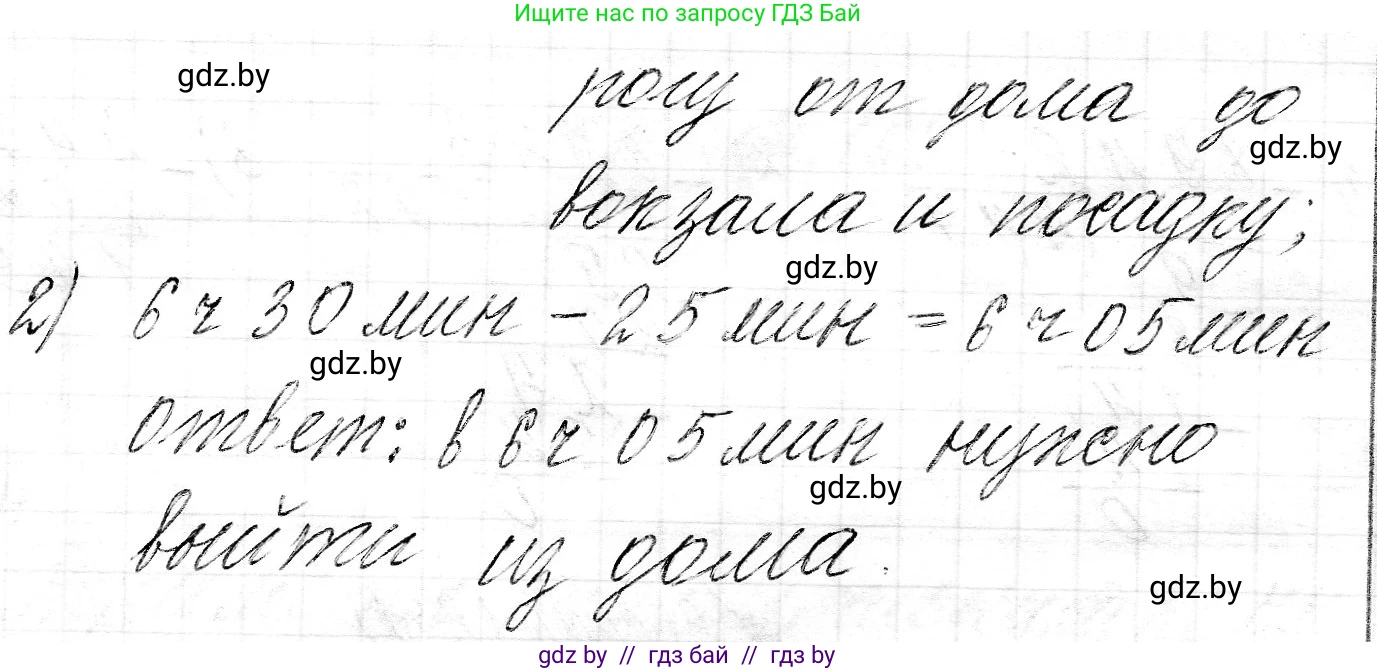 Ищите нас по запросу ГДЗ Бай
gdz.by
рогу от дома до
gdz.by
вокзала и посадку;
gdz.by
2) 6 ч 30 мин - 25 мин = 6 ч 05 мин
gdz.by
ответ: в 6 ч 05 мин нужно
gdz.by
выйти из дома.
gdz.by
gdz by // гдз бай // гдз by